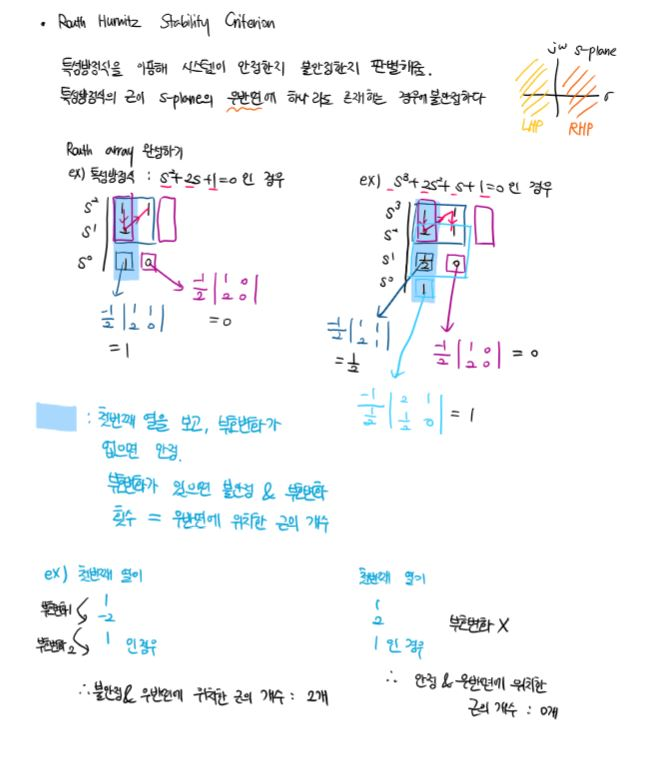 • Routh Hurwitz Stability Criterion
특성방정식을 이용해 시스템이 안정한지 불안정한지 판별해줌.
특성방정식의 근이 s-plane의 우반면에 하나라도 존재하는 경우에 불안정하다
jw s-plane
σ
LHP RHP
Routh array 완성하기
ex) 특성방정식 : s²+2s+1=0 인 경우
s² 1 1
s¹ 2
s⁰ 1 0
-1/2 | 1 1 ; 2 0 |
= 1
-1/2 | 1 0 ; 2 0 |
= 0
ex) s³+2s²+s+1=0 인 경우
s³ 1 1
s² 2 1
s¹ 1/2 0
s⁰ 1
-1/2 | 1 1 ; 2 1 |
= 1/2
-1/2 | 1 0 ; 2 0 | = 0
-1/(1/2) | 2 1 ; 1/2 0 | = 1
: 첫번째 열을 보고, 부호변화가
없으면 안정.
부호변화가 있으면 불안정 & 부호변화
횟수 = 우반면에 위치한 근의 개수
ex) 첫번째 열이
부호변화1
1
-2
부호변화2
1 인경우
∴ 불안정 & 우반면에 위치한 근의 개수 : 2개
첫번째 열이
1
2
1 인 경우
부호변화 X
∴ 안정 & 우반면에 위치한
근의 개수 : 0개